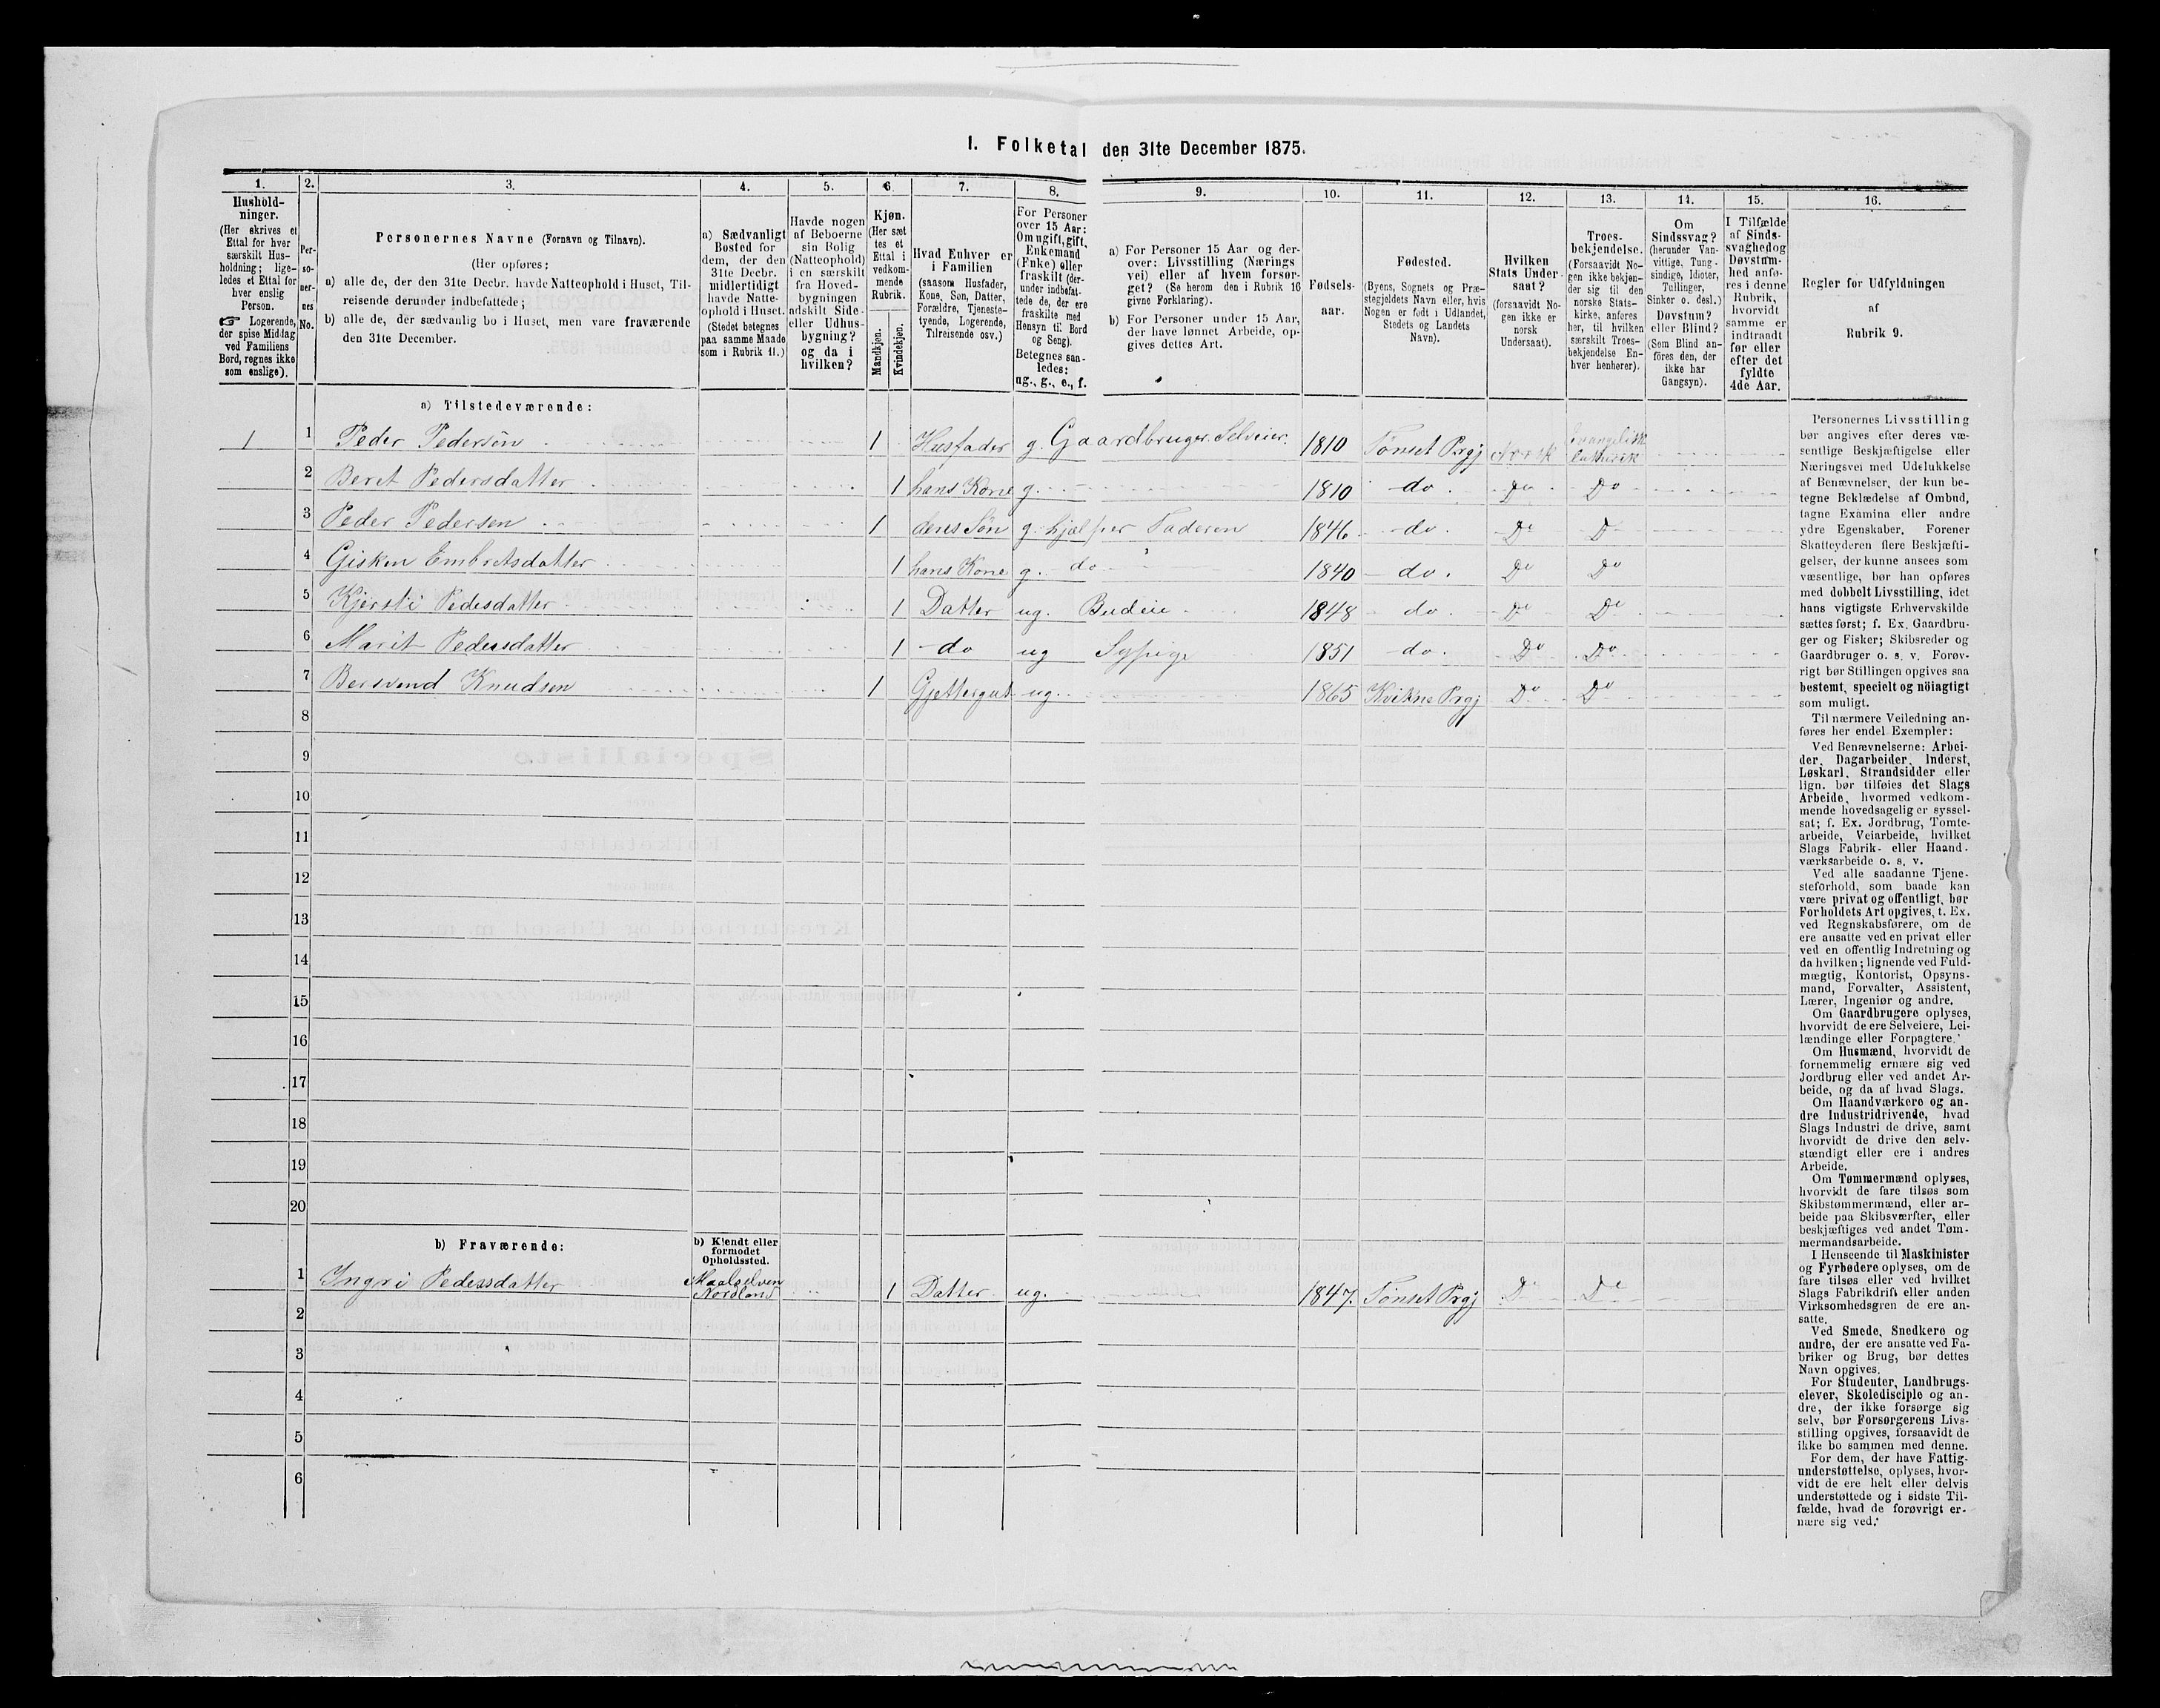 I. Folketal den 31te December 1875.
1.
Hushold-
ninger.
(Her skrives et
Ettal for hver
særskilt Hus-
holdning; lige-
ledes et Ettal for
hver enslig
Person.
☞ Logerende,
der spise Middag
ved Familiens
Bord, regnes ikke
som enslige).
2.
Per-
so-
ner-
nes
No.
3.
Personernes Navne (Fornavn og Tilnavn).
(Her opføres:
a) alle de, der den 31te Decbr. havde Natteophold i Huset, Til-
reisende derunder indbefattede;
b) alle de, der sædvanlig bo i Huset, men vare fraværende
den 31te December.
4.
a) Sædvanligt
Bosted for
dem, der den
31te Decbr.
midlertidigt
havde Natte-
ophold i Huset.
(Stedet betegnes
paa samme Maade
som i Rubrik 11.)
5.
Havde nogen
af Beboerne
sin Bolig
(Natteophold)
i en særskilt
fra Hoved-
bygningen
adskilt Side-
eller Udhus-
bygning?
og da i
hvilken?
6.
Kjøn.
(Her sæt
tes et
Ettal i
vedkom-
mende
Rubrik.
Mandkjøn.
Kvindekjøn.
7.
Hvad Enhver er
i Familien
(saasom Husfader,
Kone, Søn, Datter,
Forældre, Tjeneste-
tyende, Logerende,
Tilreisende osv.)
8.
For Personer
over 15 Aar:
Om ugift, gift,
Enkemand
(Enke) eller
fraskilt (der-
under indbefat-
tede de, der ere
fraskilte med
Hensyn til Bord
og Seng).
Betegnes saa-
ledes:
ug., g., e., f.
9.
a) For Personer 15 Aar og der-
over: Livsstilling (Nærings
vei) eller af hvem forsør-
get? (Se herom den i Rubrik 16
givne Forklaring).
b) For Personer under 15 Aar,
der have lønnet Arbeide, op-
gives dettes Art.
10.
Fødsels-
aar.
11.
Fødested.
(Byens, Sognets og Præ-
stegjeldets Navn eller, hvis
Nogen er født i Udlandet,
Stedets og Landets
Navn).
12.
Hvilken
Stats Under-
saat?
(forsaavidt No-
gen ikke er
norsk
Undersaat).
13.
Troes-
bekjendelse.
(Forsaavidt No-
gen ikke bekjen-
der sig til den
norske Stats-
kirke, anføres
her, til hvilken
særskilt Troes-
bekjendelse En-
hver henhører).
14.
Om
Sindssvag?
(herunder Van-
vittige, Tung-
sindige, Idioter,
Tullinger,
Sinker o. desl.)
Døvstum?
eller Blind?
(Som Blind an-
föres den, der
ikke har
Gangsyn).
15.
I Tilfælde
af Sinds-
svaghed og
Døvstum-
hed anfø-
res i denne
Rubrik,
hvorvidt
samme er
indtraadt
før eller
efter det
fyldte
4de Aar.
16.
Regler for Udfyldningen
af
Rubrik 9.
a) Tilstedeværende:
1 1 Peder Pedersøn 1 Husfader g. Gaardbruger. Selveier. 1810 Tønset Prgj Norsk Evangelisk
Luthersk
2 Beret Pedersdatter 1 hans Kone g. 1810 do. Do Do
3 Peder Pedersen 1 deres Søn g. hjælper Faderen 1846 do. Do D
4 Gisken Embretsdatter 1 hans Kone g. do 1840 do. Do Do
5 Kjersti Pedesdatter 1 Datter ug. Budeie 1848 do. Do Do
6 Marit Pedersdatter 1 do ug Sypige 1851 do. Do Do
7 Bersvend Knudsen 1 Gjettergut ug. 1865 Kvikne Prgj Do Do
8
9
10
11
12
13
14
15
16
17
18
19
20
b) Fraværende:
b) Kjendt eller
formodet
Opholdssted.
1 Ingri Pedersdatter Maalselven
Nordland 1 Datter ug. 1847. Tønset Prgj Do Do
2
3
4
5
6
Personernes Livsstilling
bør angives efter deres væ-
sentlige Beskjæftigelse eller
Næringsvei med Udelukkelse
af Benævnelser, der kun be-
tegne Beklædelse af Ombud,
tagne Examina eller andre
ydre Egenskaber. Forener
Skatteyderen flere Beskjæfti-
gelser, der kunne ansees som
væsentlige, bør han opføres
med dobbelt Livsstilling, idet
hans vigtigste Erhvervskilde
sættes først; f. Ex. Gaardbru-
ger og Fisker; Skibsreder og
Gaardbruger o. s. v. Forøv-
rigt bør Stillingen opgives saa
bestemt, specielt og nöiagtigt
som muligt.
Til nærmere Veiledning an-
føres her endel Exempler:
Ved Benævnelserne: Arbei-
der, Dagarbeider, Inderst,
Løskarl, Strandsidder eller
lign. bør tilføies det Slags
Arbeide, hvormed vedkom-
mende hovedsagelig er syssel-
sat; f. Ex. Jordbrug, Tomte-
arbeide, Veiarbeide, hvilket
Slags Fabrik- eller Haand-
værksarbeide o. s. v.
Ved alle saadanne Tjene-
steforhold, som baade kan
være privat og offentligt, bør
Forholdets Art opgives, t. Ex.
ved Regnskabsførere, om de
ere ansatte ved en privat eller
ved en offentlig Indretning og
da hvilken; lignende ved Fuld-
mægtig, Kontorist, Opsyns-
mand, Forvalter, Assistent,
Lærer, Ingeniør og andre.
Om Gaardbrugere oplyses,
hvorvidt de ere Selveiere, Lei-
lændinge eller Forpagtere.
Om Husmænd, hvorvidt de
fornemmelig ernære sig ved
Jordbrug eller ved andet Ar-
beide, og da af hvad Slags.
Om Haandværkere og an-
dre Industridrivende, hvad
Slags Industri de drive, samt
hvorvidt de drive den selv-
stændigt eller ere i andres
Arbeide.
Om Tømmermænd oplyses,
hvorvidt de fare tilsøs som
Skibstømmermænd, eller ar-
beide paa Skibsværfter, eller
beskjæftiges ved andet Tøm-
mermandsarbeide.
I Henseende til Maskinister
og Fyrbødere oplyses, om de
fare tilsøs eller ved hvilket
Slags Fabrikdrift eller anden
Virksomhedsgren de ere an-
satte.
Ved Smede, Snedkere og
andre, der ere ansatte ved Fa-
briker og Brug, bør dettes
Navn opgives.
For Studenter, Landbrugs-
elever, Skoledisciple og an-
dre, der ikke forsørge sig
selv, bør Forsørgerens Livs-
stilling opgives, forsaavidt de
ikke bo sammen med denne.
For dem, der have Fattig-
understøttelse, oplyses, hvor-
vidt de ere helt eller delvis
understøttede og i sidste Til-
fælde, hvad de forøvrigt er-
nære sig ved.